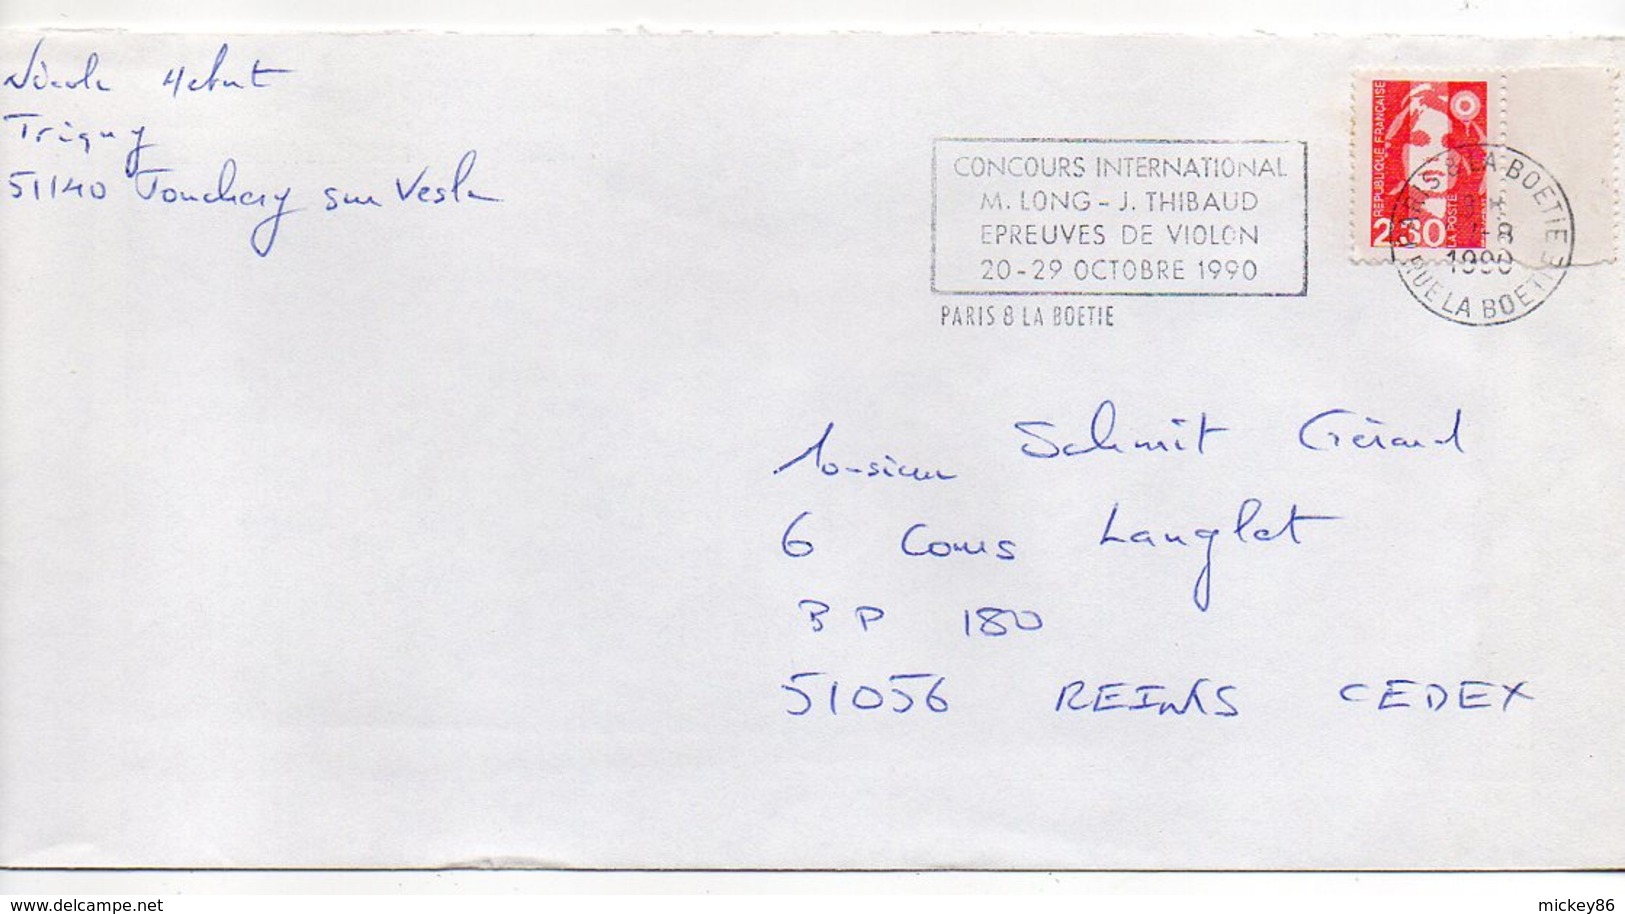 Nicole Hebert
Trigny
51140 Jonchery sur Vesle
CONCOURS INTERNATIONAL
M. LONG - J. THIBAUD
EPREUVES DE VIOLON
20 - 29 OCTOBRE 1990
PARIS 8 LA BOETIE
REPUBLIQUE FRANÇAISE
2,30
LA POSTE
PARIS 8 LA BOETIE
-8
1990
RUE LA BOETIE
Monsieur Schmit Gérard
6 Cours Langlet
BP 180
51056 REIMS CEDEX
www.delcampe.net
mickey86